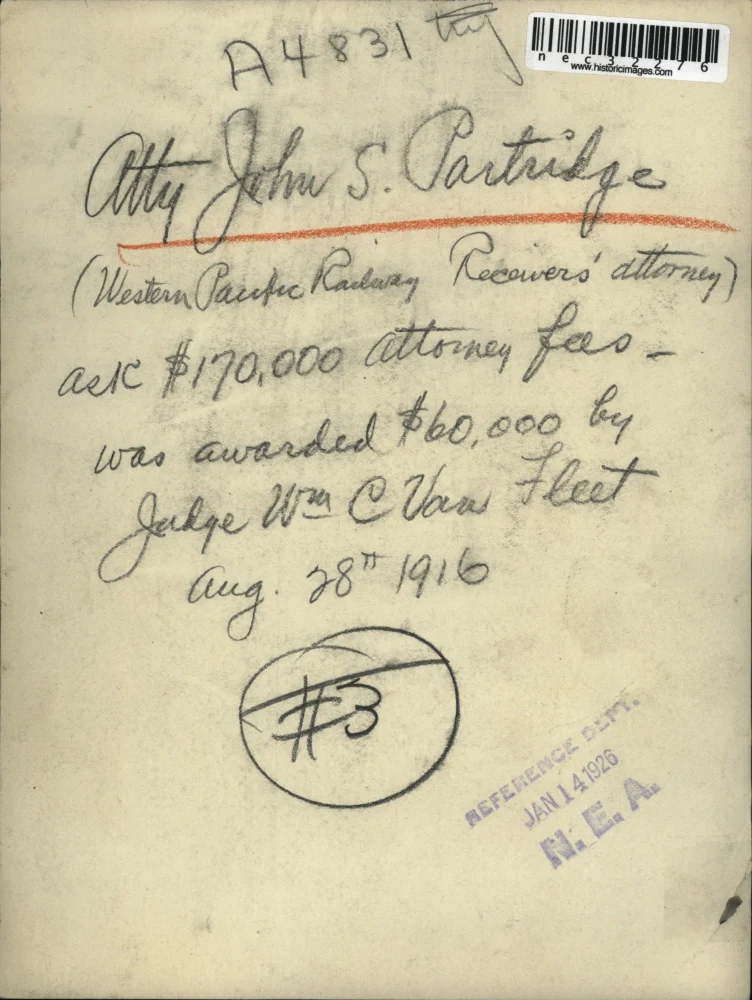 A4831
nec32276
www.historicimages.com
Atty John S. Partridge
(Western Pacific Railway Receivers' attorney)
ask $170,000 attorney fees -
was awarded $60,000 by
Judge Wm C Van Fleet
Aug. 28th 1916
#3
REFERENCE DEPT.
JAN 14 1926
N. E. A.